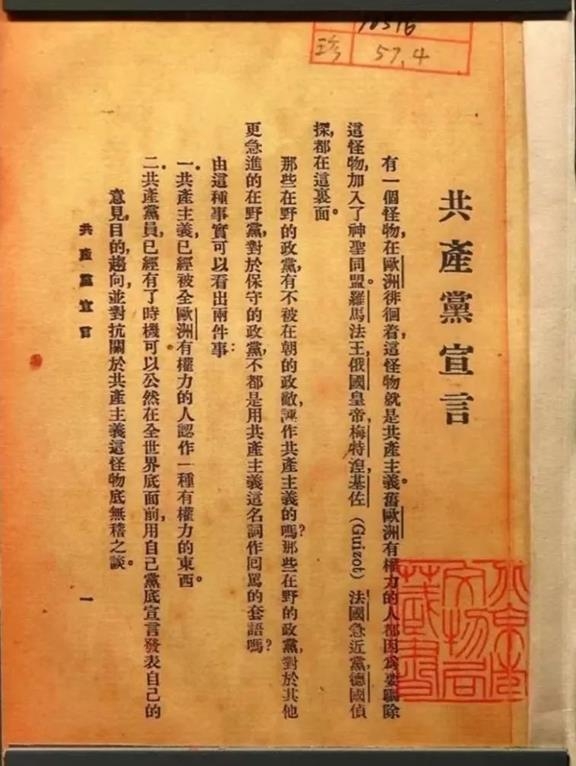 珍 57.4
共產黨宣言
有一個怪物,在歐洲徘徊着,這怪物就是共產主義。舊歐洲有權力的人都因為要驅除
這怪物,加入了神聖同盟。羅馬法王,俄國皇帝,梅特湼,基佐(Guizot)法國急近黨,德國偵
探都在這裏面。
那些在野的政黨,有不被在朝的政敵,誣作共產主義的嗎?那些在野的政黨,對於其他
更急進的在野黨,對於保守的政黨,不都是用共產主義這名詞作回罵的套語嗎?
由這種事實可以看出兩件事:
一.共產主義,已經被全歐洲有權力的人認作一種有權力的東西。
二.共產黨員,已經有了時機可以公然在全世界底面前,用自己黨底宣言發表自己的
意見,目的,趨向,並對抗關於共產主義這怪物底無稽之談。
共產黨宣言 一
北京市
文物局
藏書